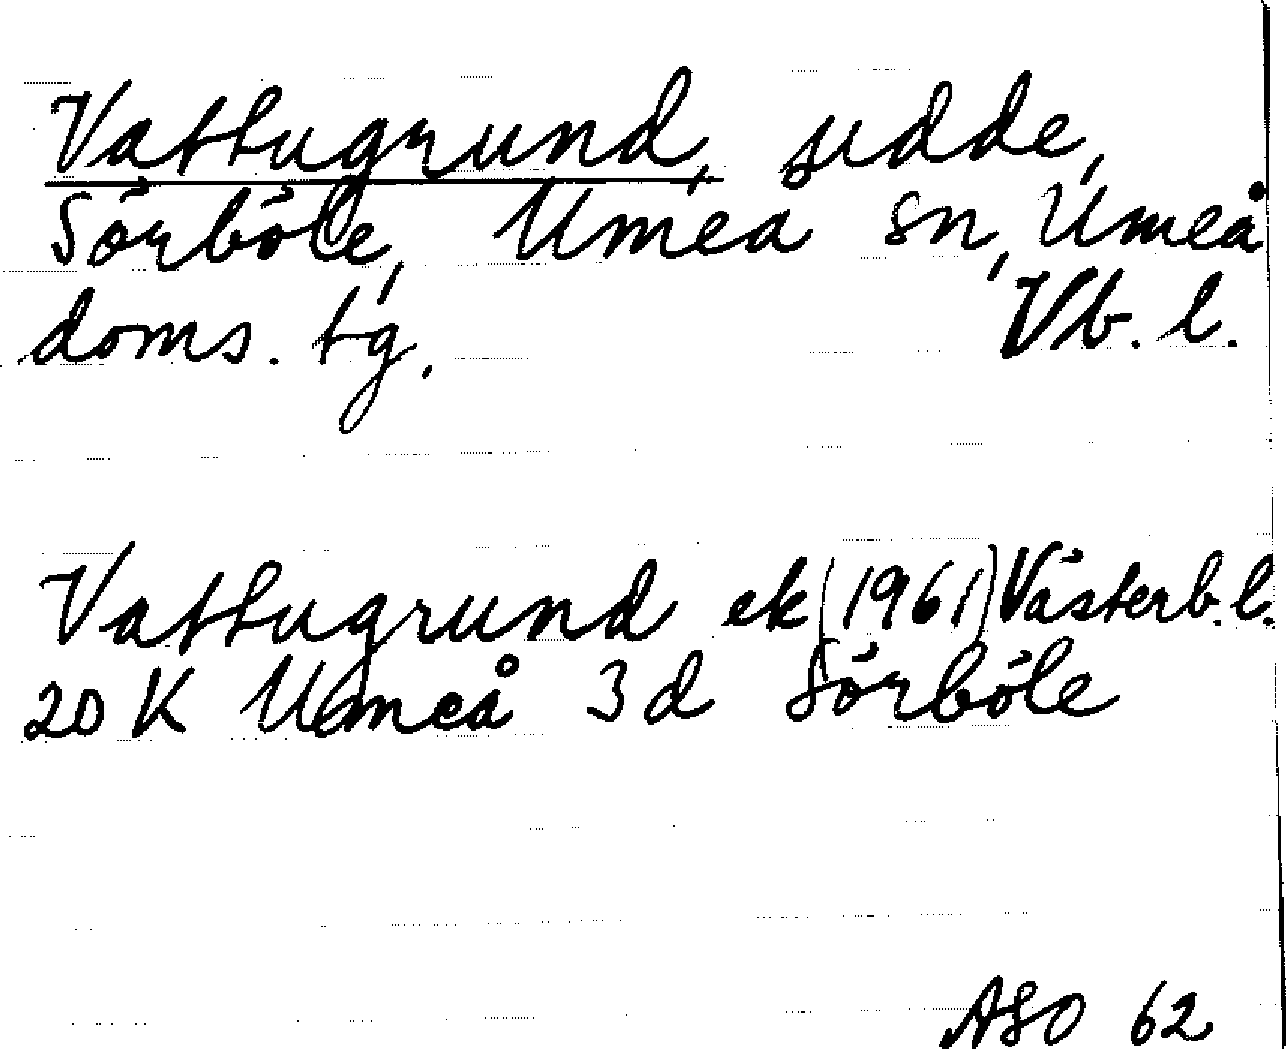 Vattugrund, udde,
Sörböle, Umea sn, Umeå
doms. tg. Vb. l.
Vattugrund ek (1961) Västerb. l.
20 K Umeå 3d Sörböle
ASO 62